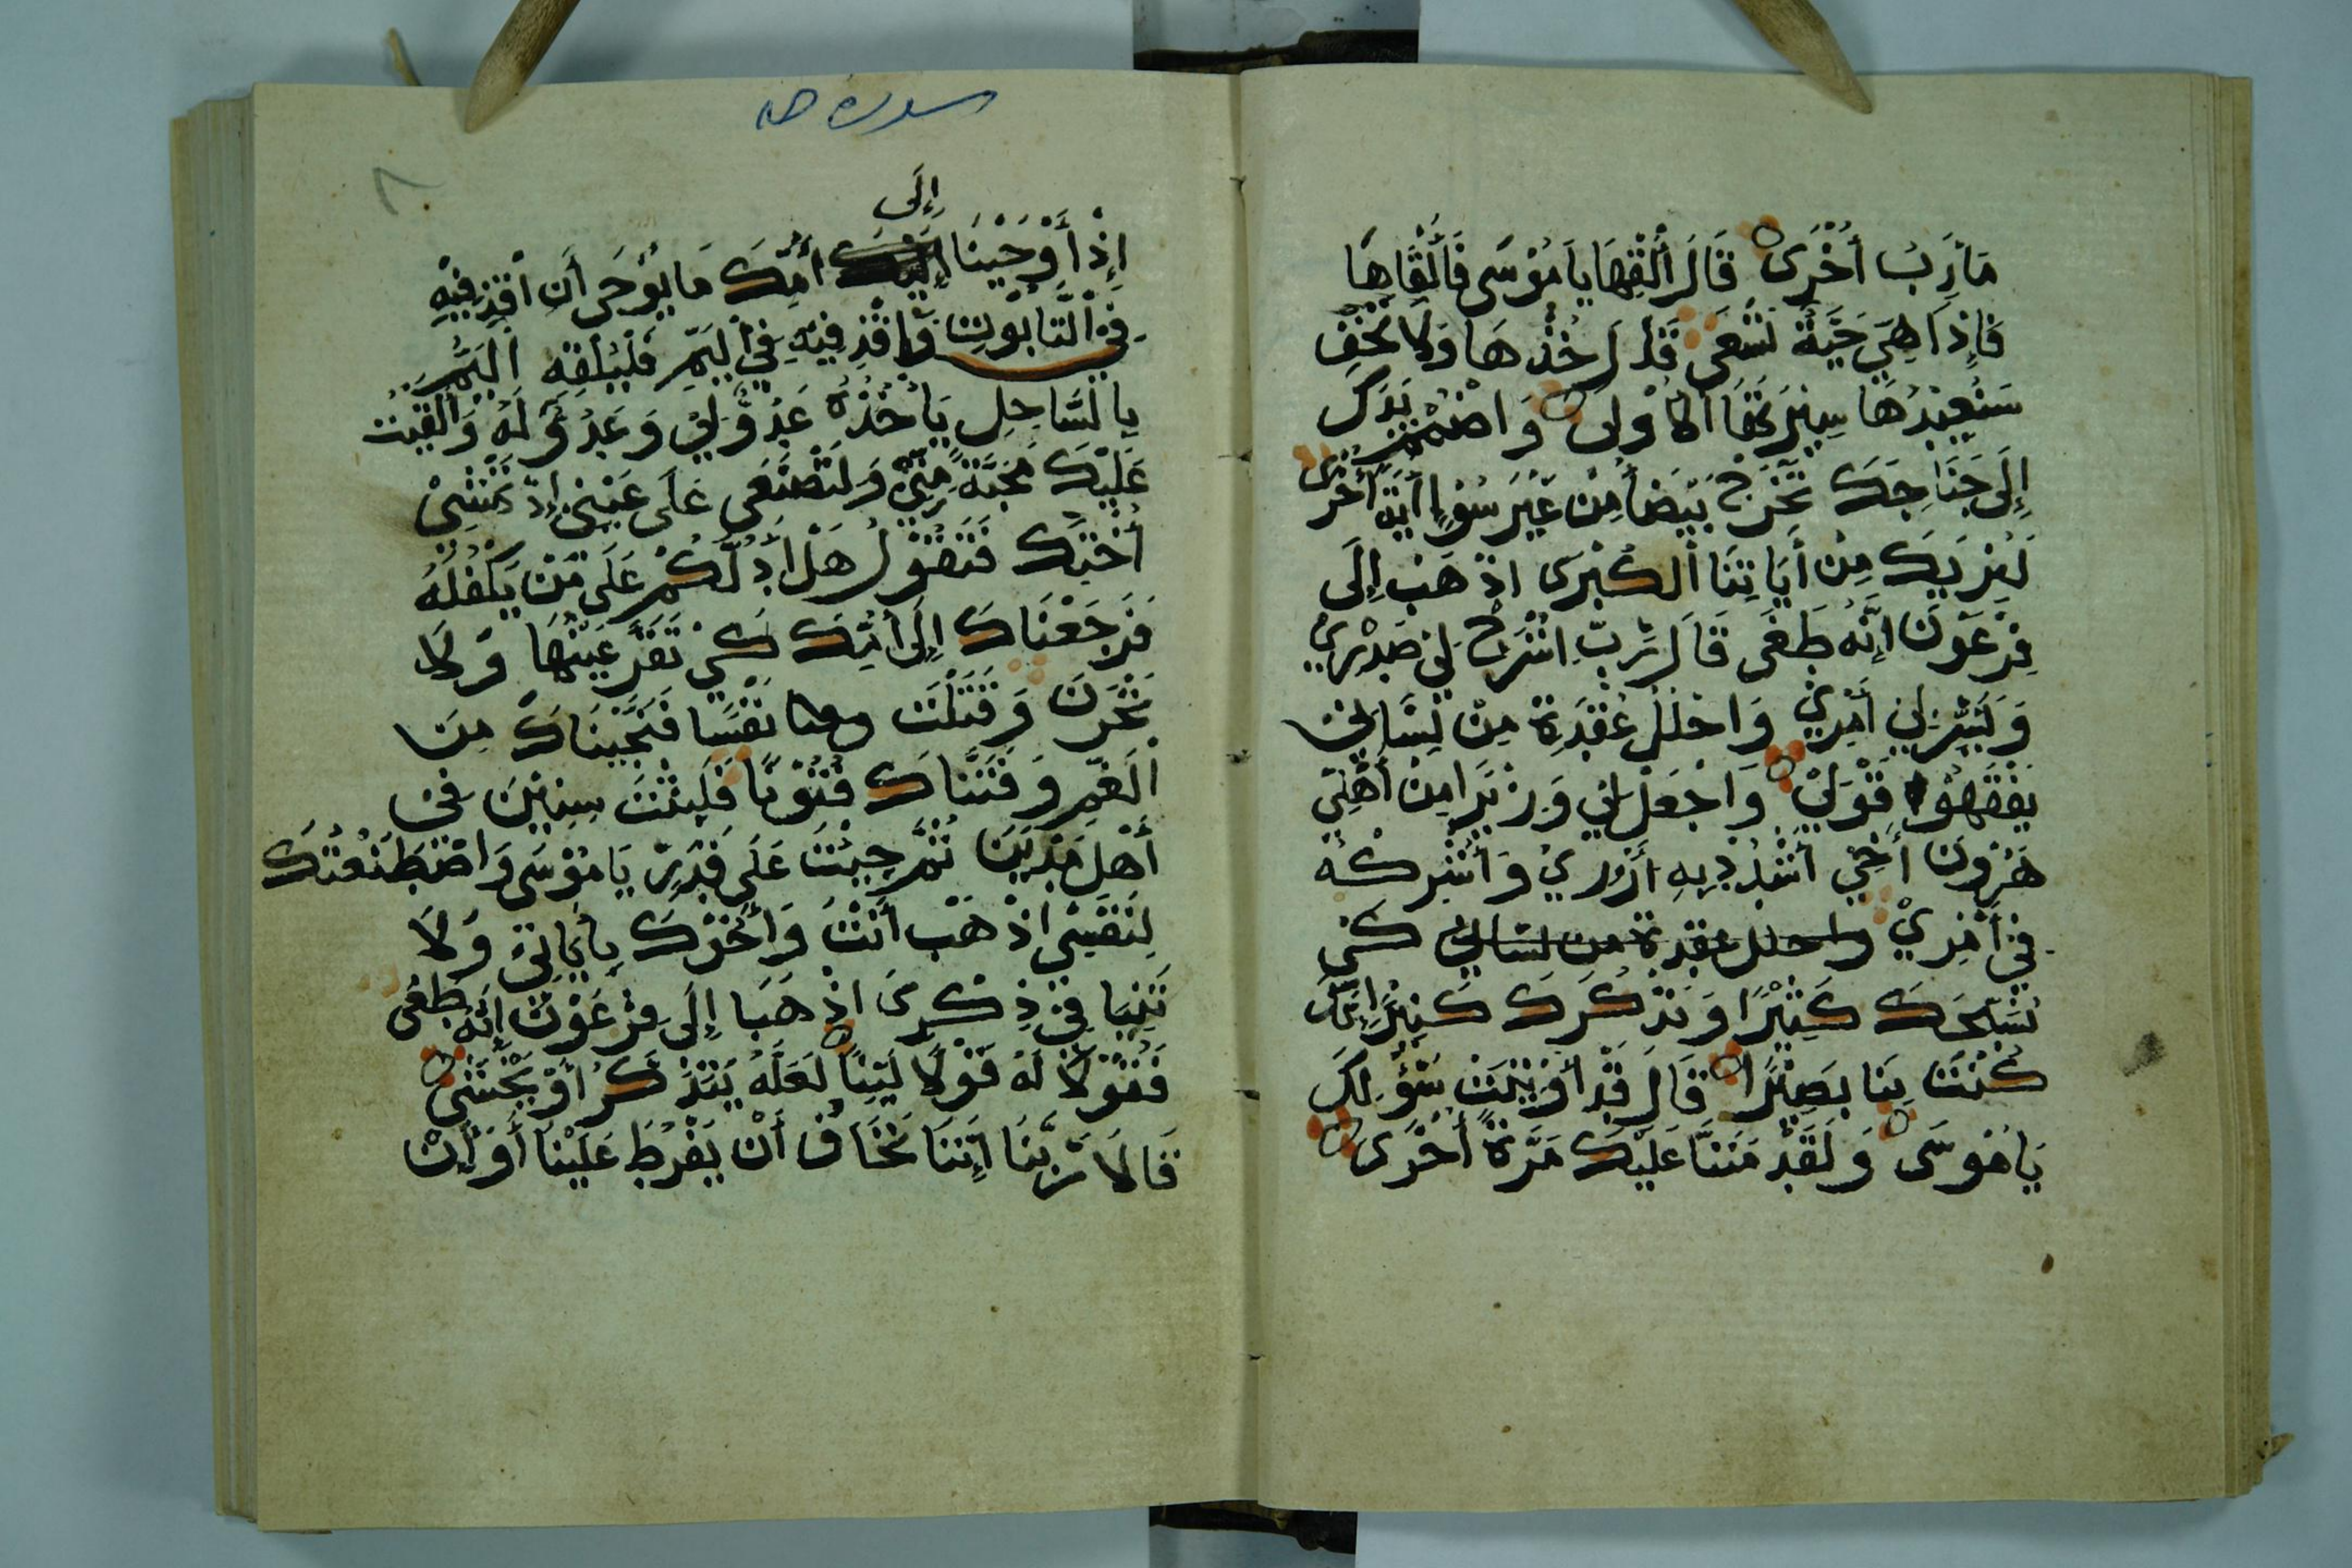 مَأَرِبُ أُخْرَى قَالَ أَلْقِهَا يَا مُوْسَى فَأَلْقَاهَا
فَإِذَا هِيَ حَيَّةٌ تَسْعَى قَالَ خُذْهَا وَلَا تَخَفْ
سَنُعِيْدُهَا سِيْرَتَهَا الْأُوْلَى وَاضْمُمْ يَدَكَ
إِلَى جَنَاحِكَ تَخْرُجْ بَيْضَأ مِنْ غَيْرِ سُوْإٍ أَيَةً أُخْرَى
لِنُرِيَكَ مِنْ أَيَاتِنَا الْكُبْرَى اذْهَبْ إِلَى
فِرْعَوْنَ إِنَّهُ طَغَى قَالَ رَبِّ اشْرَحْ لِي صَدْرِيْ
وَيَسِّرْ لِي أَمْرِيْ وَاحْلُلْ عُقْدَةً مِنْ لِسَانِي
يَفْقَهُوْا قَوْلِيْ وَاجْعَلْ لِي وَزِيْرًا مِنْ أَهْلِيْ
هَرُوْنَ أَخِيْ اشْدُدْ بِهِ أَزْرِيْ وَأَشْرِكْهُ
فِيْ أَمْرِيْ واحلل عقدة من لساني كَيْ
نُسَبِّحَكَ كَثِيْرًا وَنَذْكُرَكَ كَثِيْرًا إِنَّكَ
كُنْتَ بِنَا بَصِيْرًا قَالَ قَدْ أُوْتِيْتَ سُؤْلَكَ
يَا مُوْسَى وَلَقَدْ مَنَنَّا عَلَيْكَ مَرَّةً أُخْرَى
سورة طه
٨
إِلَى
إِذْ أَوْحَيْنَا إِلَيْكَ أُمِّكَ مَا يُوْحَى أَنِ اقْذِفِيْهِ
فِي التَّابُوْتِ فَاقْذِفِيْهِ فِي الْيَمِّ فَلْيُلْقِهِ الْيَمُّ
بِالسَّاحِلِ يَأْخُذْهُ عَدُوٌّ لِيْ وَعَدُوٌّ لَهُ وَأَلْقَيْتُ
عَلَيْكَ مَحَبَّةً مِنِّيْ وَلِتُصْنَعَى عَلَى عَيْنِيْ إِذْ تَمْشِيْ
أُخْتُكَ فَتَقُوْلُ هَلْ أَدُلُّكُمْ عَلَى مَنْ يَكْفُلُهُ
فَرَجَعْنَاكَ إِلَى أُمِّكَ كَيْ تَقَرَّ عَيْنُهَا وَلَا
تَحْزَنَ وَقَتَلْتَ نَفْسًا فَنَجَّيْنَاكَ مِنَ
الْغَمِّ وَفَتَنَّاكَ فُتُوْنًا فَلَبِثْتَ سِنِيْنَ فِي
أَهْلِ مَدْيَنَ ثُمَّ جِئْتَ عَلَى قَدَرٍ يَا مُوْسَى وَاصْطَنَعْتُكَ
لِنَفْسِيْ اذْهَبْ أَنْتَ وَأَخُوْكَ بِأَيَاتِيْ وَلَا
تَنِيَا فِيْ ذِكْرِيْ اذْهَبَا إِلَى فِرْعَوْنَ إِنَّهُ طَغَى
فَقُوْلَا لَهُ قَوْلًا لَيِّنًا لَعَلَّهُ يَتَذَكَّرُ أَوْ يَخْشَى
قَالَا رَبَّنَا إِنَّنَا نَخَافُ أَنْ يَفْرُطَ عَلَيْنَا أَوْ أَنْ